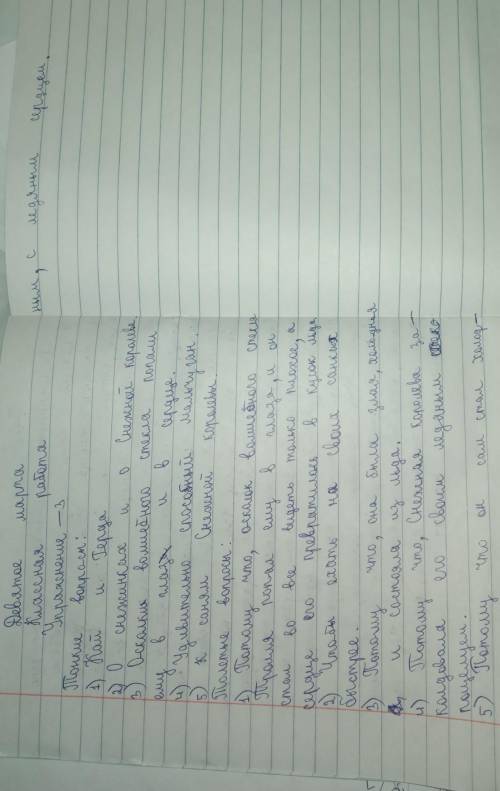 Девятое марта
Классная работа
Упражнение – 3
Тонкие вопросы:
1) Кай и Герда
2) О снежинках и о Снежной королеве
3) Осколки волшебного стекла попали
ему в глаза и в сердце.
4) Удивительно способный мальчуган.
5) К саням Снежной королевы.
Толстые вопросы:
1) Потому что, осколок волшебного стекла
Тролля попал ему в глаза, и он
стал во все видеть только плохое, а
сердце его превратилось в кусок льда
2) Чтобы ехать на своих санках
быстрее.
3) Потому что, она была злая, холодная
и состояла из льда.
4) Потому что, Снежная королева за–
колдовала его своим ледяным
поцелуем.
5) Потому что он сам стал холод–
ным, с ледяным сердцем.